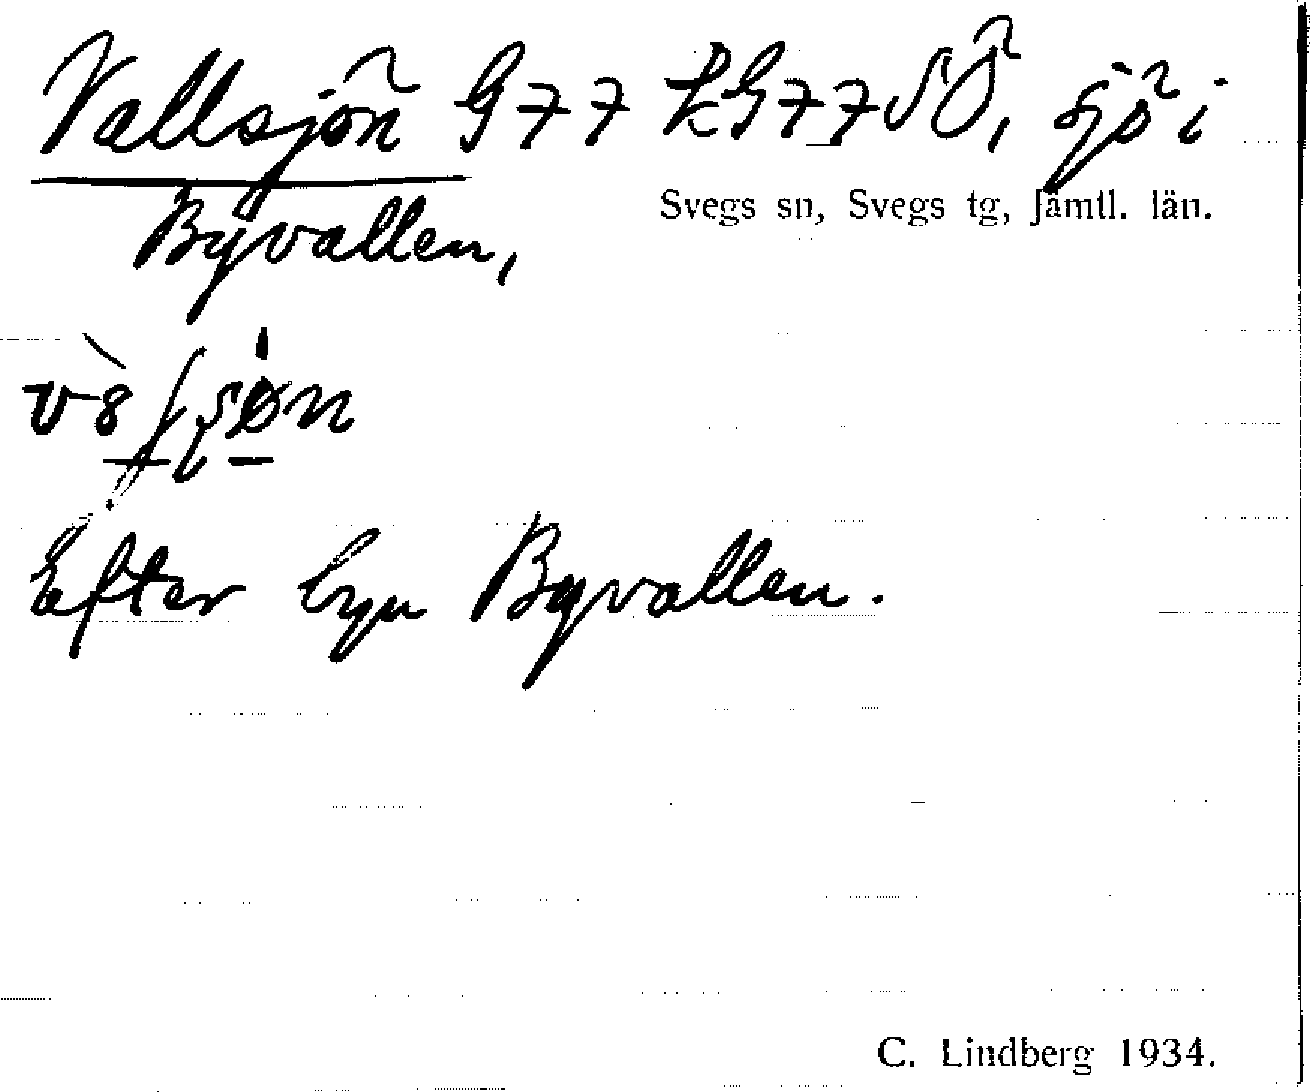 Vallsjön G77 kG77SÖ, sjö i
Svegs sn, Svegs tg, Jämtl. län.
Byvallen,
Efter byn Byvallen.
C. Lindberg 1934.